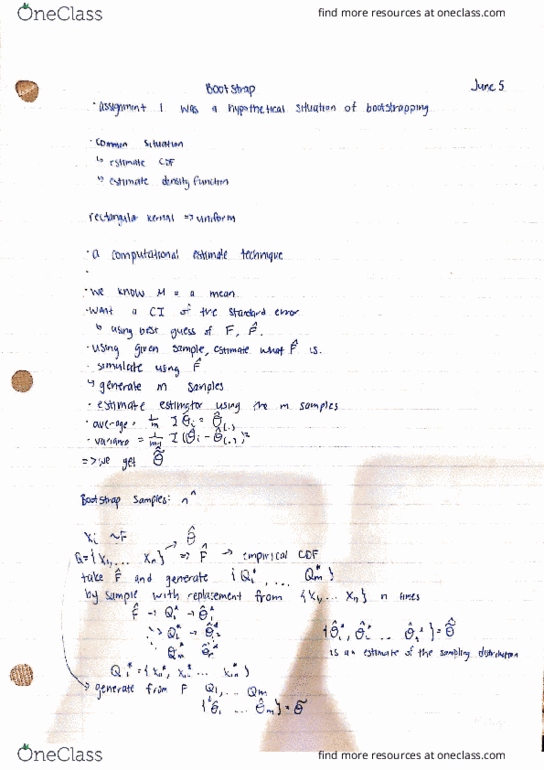 OneClass
find more resources at oneclass.com
Bootstrap
June 5
· assignment 1 was a hypothetical situation of bootstrapping
· common situation
↳ estimate CDF
↳ estimate density function
rectangular kernel => uniform
· a computational estimate technique
·
· we know M = a mean
· want a CI of the standard error
↳ using best guess of F, F̂.
· using given sample, estimate what F̂ is.
· simulate using F̂
↳ generate m samples
· estimate estimator using the m samples
· average = 1/m Σ θ̂i = θ̂(.)
· variance = Σ (θ̂i - θ̂(.))²
=> we get
Bootstrap Samples: n^n
Xi ~ F
θ̂
= {X1, ... Xn} => F̂ → empirical CDF
take F̂ and generate {Q1*, ... Qm*}
by sample with replacement from {X1, ... Xn} n times
F̂ → Q1* → θ̂1*
→ Q2* → θ̂2*
Qm* θ̂m*
is an estimate of the sampling distribution
generate from F Q1, ... Qm
OneClass
find more resources at oneclass.com